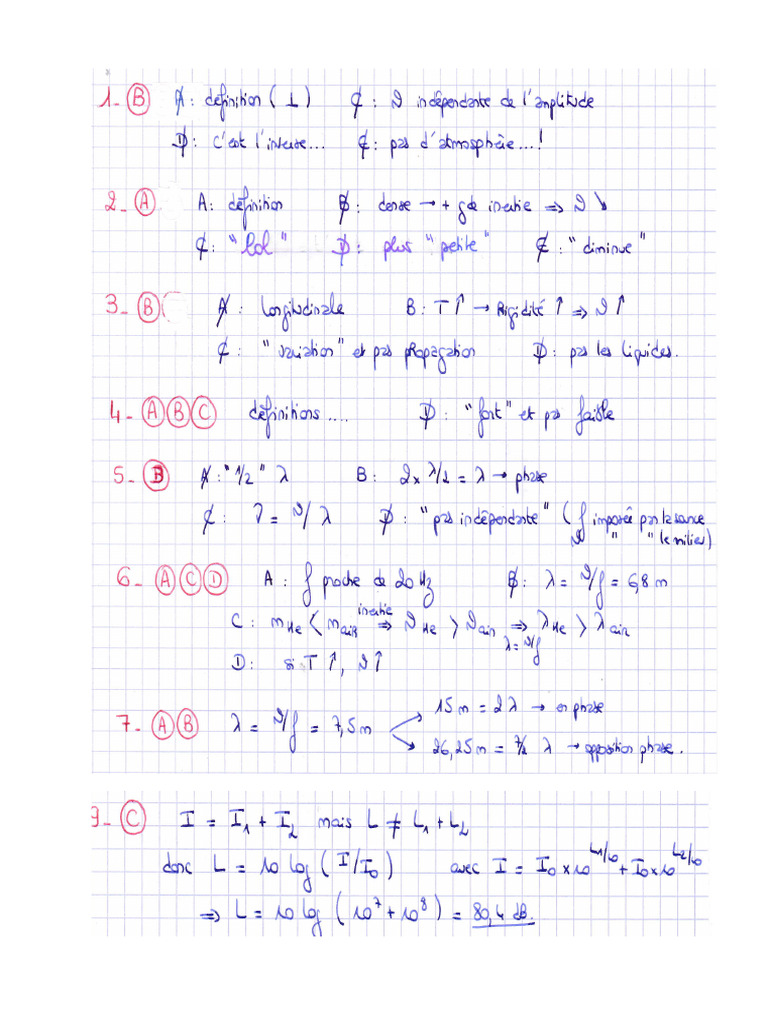 1- B A : définition ( ⊥ ) C : v indépendante de l'amplitude
D : c'est l'inverse... E : pas d'atmosphère...!
2- A A : définition B : dense → + gde inertie ⇒ v ↘
C : "lol" D : plus "petite" E : "diminue"
3- B A : longitudinale B : T↑ → Rigidité ↑ ⇒ v↑
C : "variation" et pas propagation D : pas les liquides.
4- A B C définitions .... D : "fort" et pas faible
5- B A : "1/2" λ B : 2 × λ/2 = λ → phase
C : f = v/λ D : "pas indépendante" ( f imposée par la source
v " " le milieu)
6- A C D A : f proche de 20 Hz B : λ = v/f = 6,8 m
C : m He < m air inertie ⇒ v He > v air ⇒ λ=v/f λ He > λ air
D : si T ↑, v↑
7- A B λ = v/f = 7,5 m 15 m = 2 λ → en phase
26,25 m = 7/2 λ → opposition phase.
9- C I = I1 + I2 mais L ≠ L1 + L2
donc L = 10 log ( I/I0 ) avec I = I0 × 10^L1/10 + I0 × 10^L2/10
⇒ L = 10 log ( 10^7 + 10^8 ) = 80,4 dB.